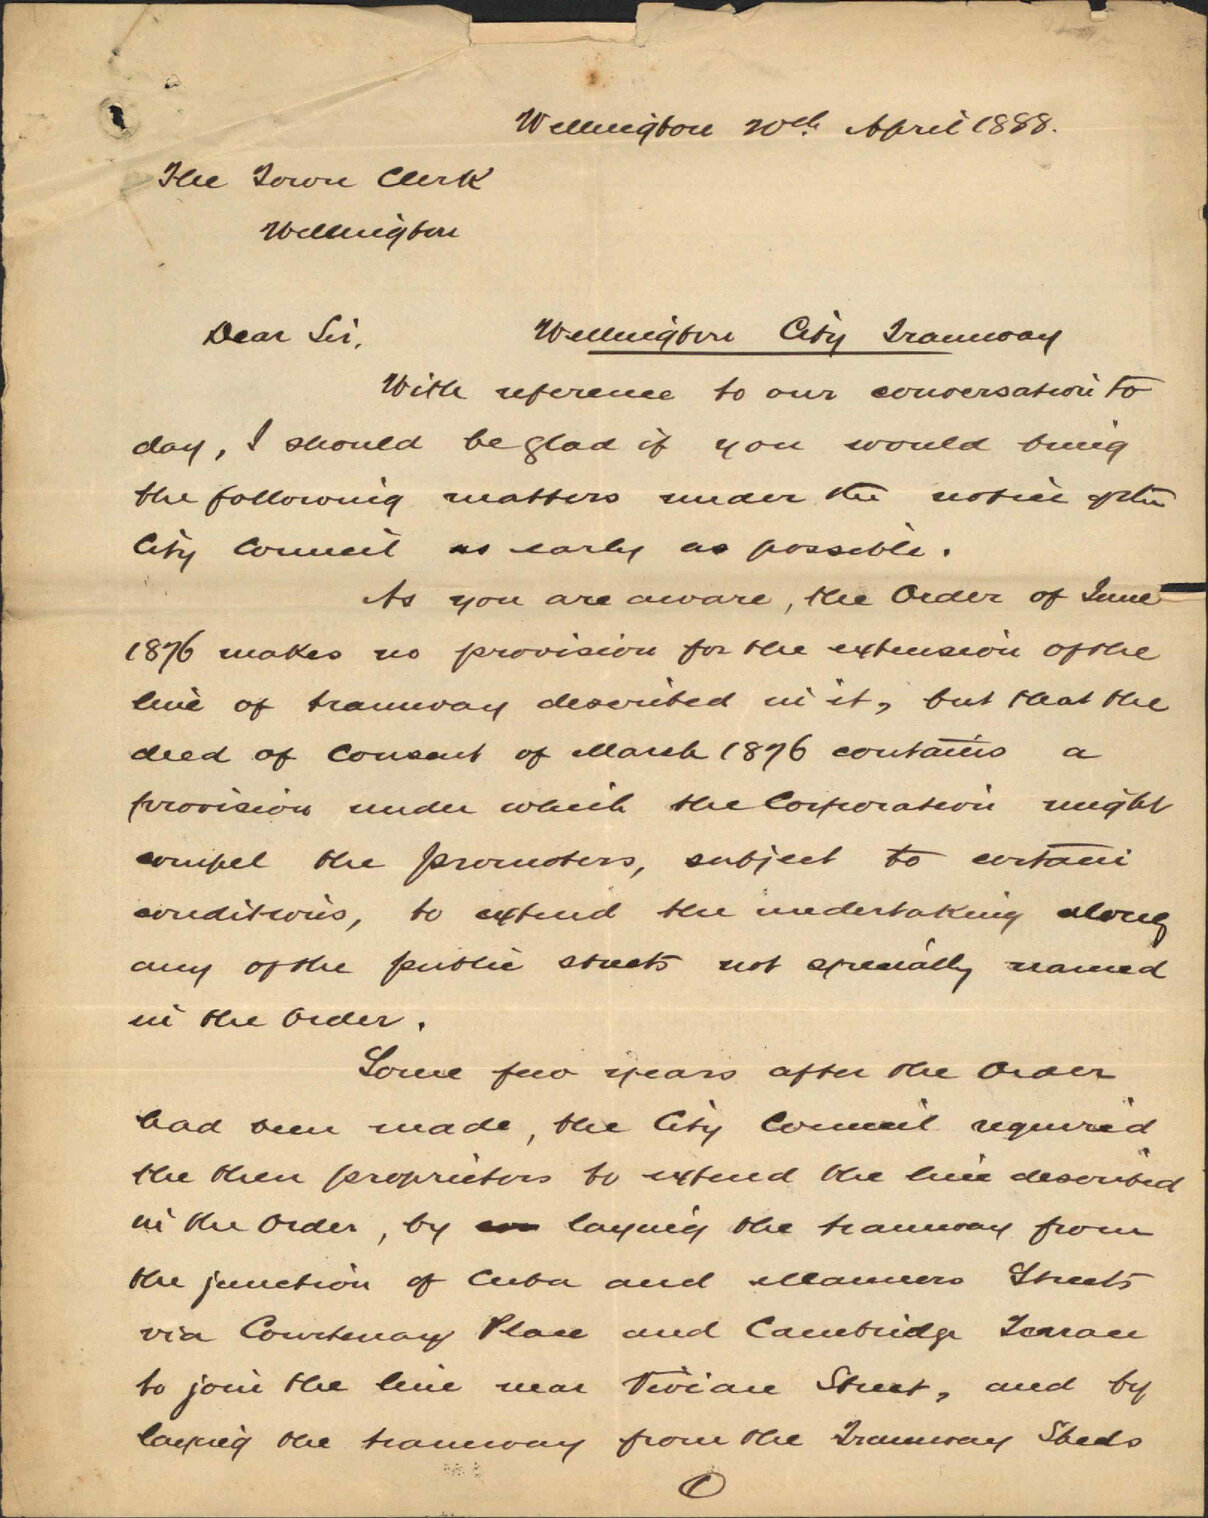 Wellington 20th. April 1888.
The Town Clerk
Wellington
Dear Sir,
Wellington City Tramway
With reference to our conversation to
day, I should be glad if you would bring
the following matters under the notice of the
City Council as early as possible.
As you are aware, the Order of June
1876 makes no provision for the extension of the
line of tramway described in it, but that the
deed of Consent of March 1876 contains a
provision under which the Corporation might
compel the promoters, subject to certain
conditions, to extend the undertaking along
any of the public streets not specially named
in the Order.
Some few years after the Order
had been made, the City Council required
the then proprietors to extend the line described
in the Order, by laying the tramway from
the junction of Cuba and Manners Streets
via Courtenay Place and Cambridge Terrace
to join the line near Vivian Street, and by
laying the tramway from the Tramway Sheds
1